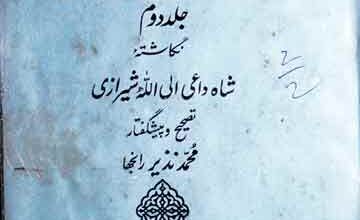 جلد دوم
نگاشتهٔ
شاه داعی الی اللّٰه شیرازی
تصحیح و پیشگفتار
محمّد نذیر رانجها